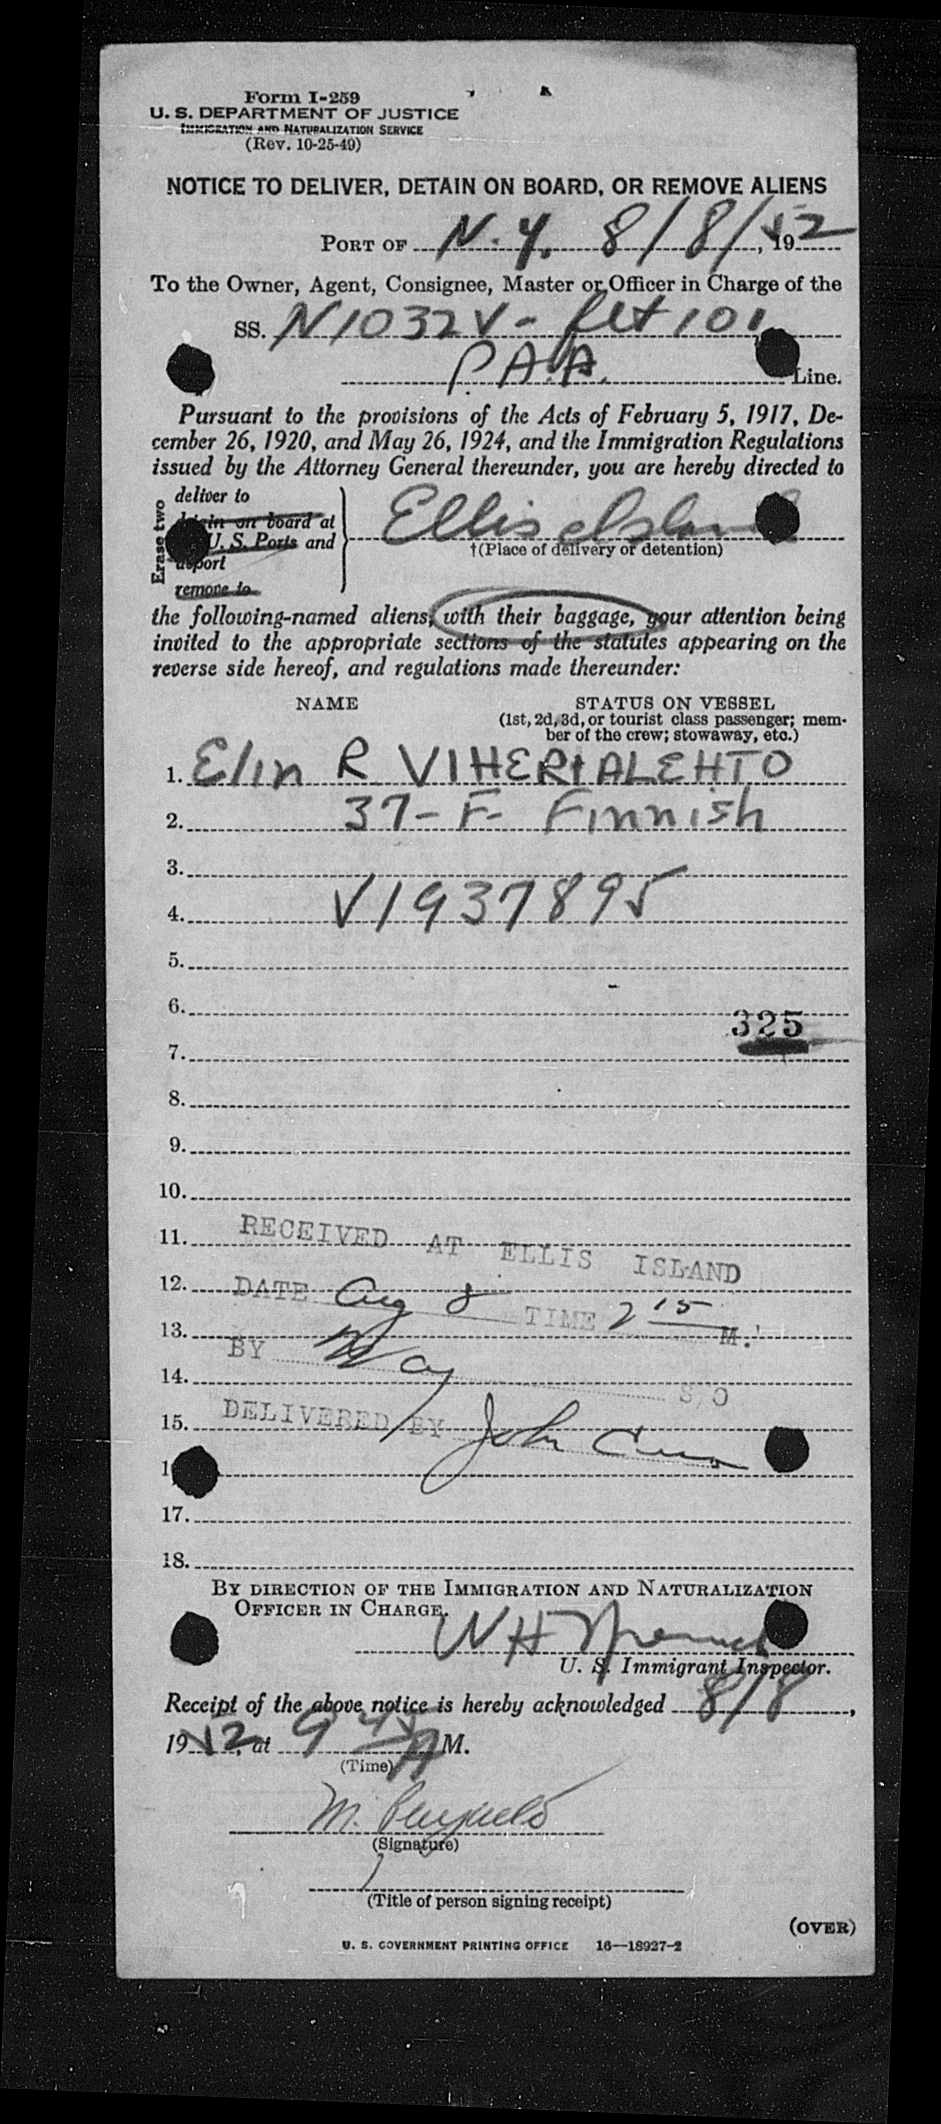 Form I-259
U. S. DEPARTMENT OF JUSTICE
IMMIGRATION AND NATURALIZATION SERVICE
(Rev. 10-25-49)
NOTICE TO DELIVER, DETAIN ON BOARD, OR REMOVE ALIENS
PORT OF N.Y. 8/8/, 1952
To the Owner, Agent, Consignee, Master or Officer in Charge of the
SS. N1032V - flt 101
P.A.A. Line.
Pursuant to the provisions of the Acts of February 5, 1917, De-
cember 26, 1920, and May 26, 1924, and the Immigration Regulations
issued by the Attorney General thereunder, you are hereby directed to
Erase two
deliver to
on board at
U. S. Ports and
remove to
Ellis Island
†(Place of delivery or detention)
the following-named aliens, with their baggage, your attention being
invited to the appropriate sections of the statutes appearing on the
reverse side hereof, and regulations made thereunder:
NAME STATUS ON VESSEL
(1st, 2d, 3d, or tourist class passenger; mem-
ber of the crew; stowaway, etc.)
1. Elin R VIHERIALEHTO
2. 37 - F - Finnish
3.
4. V1937895
5.
6.
325
7.
8.
9.
10.
11. RECEIVED AT ELLIS ISLAND
12. DATE Aug 8 TIME 2 15 M.
13.
BY May S/O
14.
15. DELIVERED BY John
17.
18.
BY DIRECTION OF THE IMMIGRATION AND NATURALIZATION
OFFICER IN CHARGE.
W H
U. S. Immigrant Inspector.
Receipt of the above notice is hereby acknowledged 8/8,
1952, at 9 45 A M.
(Time)
M.
(Signature)
(Title of person signing receipt)
(OVER)
U. S. GOVERNMENT PRINTING OFFICE 16—18927-2